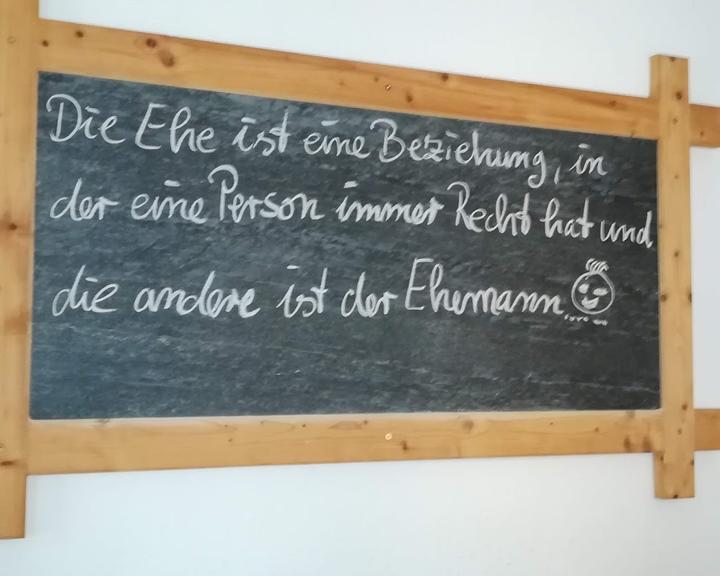 Die Ehe ist eine Beziehung, in
der eine Person immer Recht hat und
die andere ist der Ehemann.....